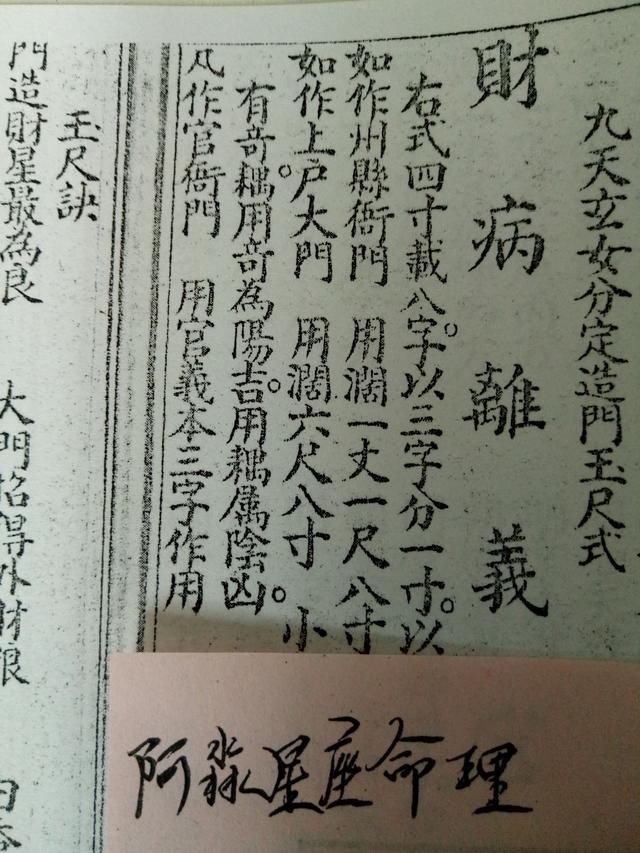 九天玄女分定造門玉尺式
財病離義
右式四寸載八字。以三字分一寸。以
如作州縣衙門　用濶一丈一尺八寸
如作上。戶大門　用濶六尺八寸　小
有竒耦用竒為陽吉。用耦属陰凶。
凡作官衙門　用官義本三字作用
玉尺訣
門造財星最為良　大門招得外財
阿淼星座命理